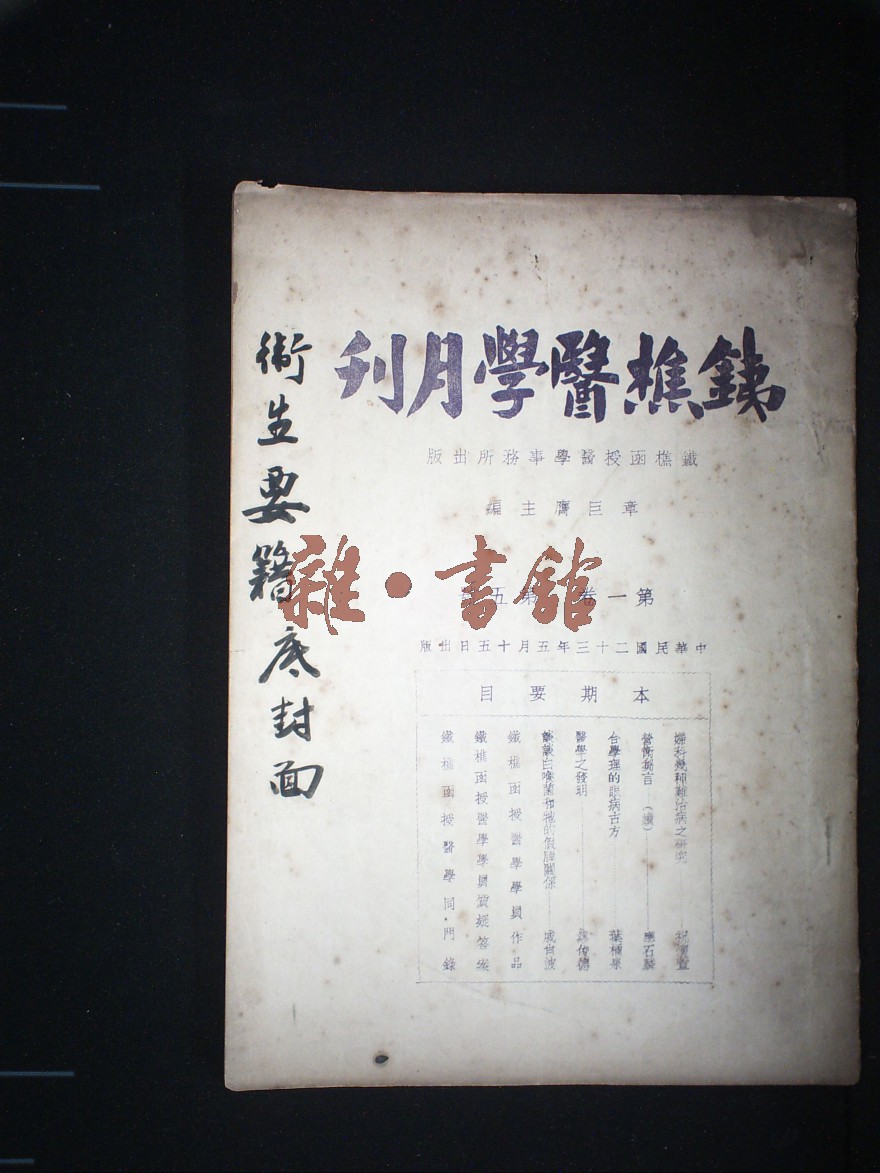 銕樵醫學月刊
鐵樵函授醫學事務所出版
章巨膺主編
第一卷 第五
中華民國二十三年五月十五日出版
本期要目
婦科幾種難治病之研究
營衛剩言 (續) 石麟
合學理的眼病古方 葉橘泉
醫學之發明 傳德
談談白喉菌和牠的假膜關係
鐵樵函授醫學學員作品
鐵樵函授醫學學員質疑答案
鐵樵函授醫學同門錄
衛生要籍底封面
雜·書館